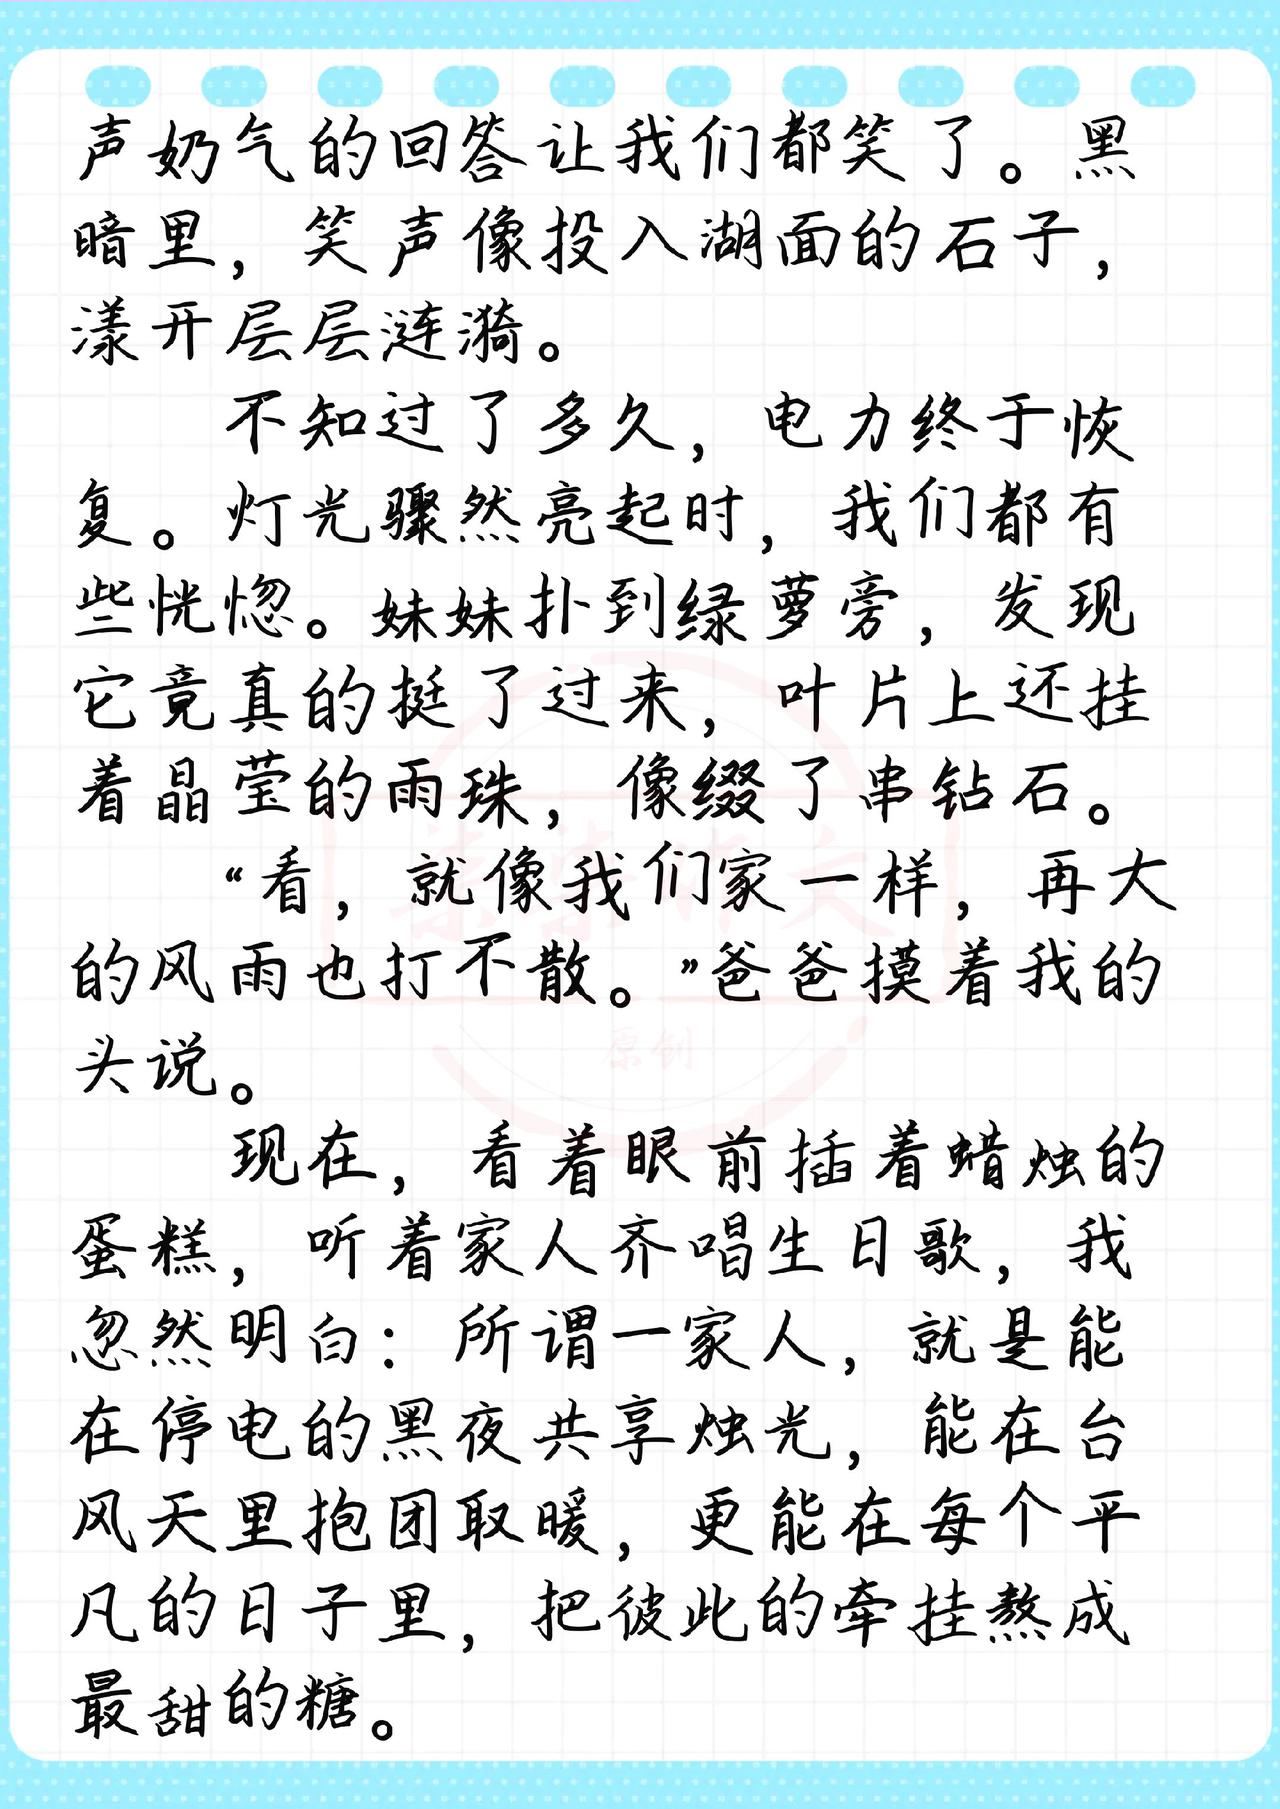 声奶气的回答让我们都笑了。黑
暗里，笑声像投入湖面的石子，
漾开层层涟漪。
不知过了多久，电力终于恢
复。灯光骤然亮起时，我们都有
些恍惚。妹妹扑到绿萝旁，发现
它竟真的挺了过来，叶片上还挂
着晶莹的雨珠，像缀了串钻石。
“看，就像我们家一样，再大
的风雨也打不散。”爸爸摸着我的
头说。
现在，看着眼前插着蜡烛的
蛋糕，听着家人齐唱生日歌，我
忽然明白：所谓一家人，就是能
在停电的黑夜共享烛光，能在台
风天里抱团取暖，更能在每个平
凡的日子里，把彼此的牵挂熬成
最甜的糖。
原创